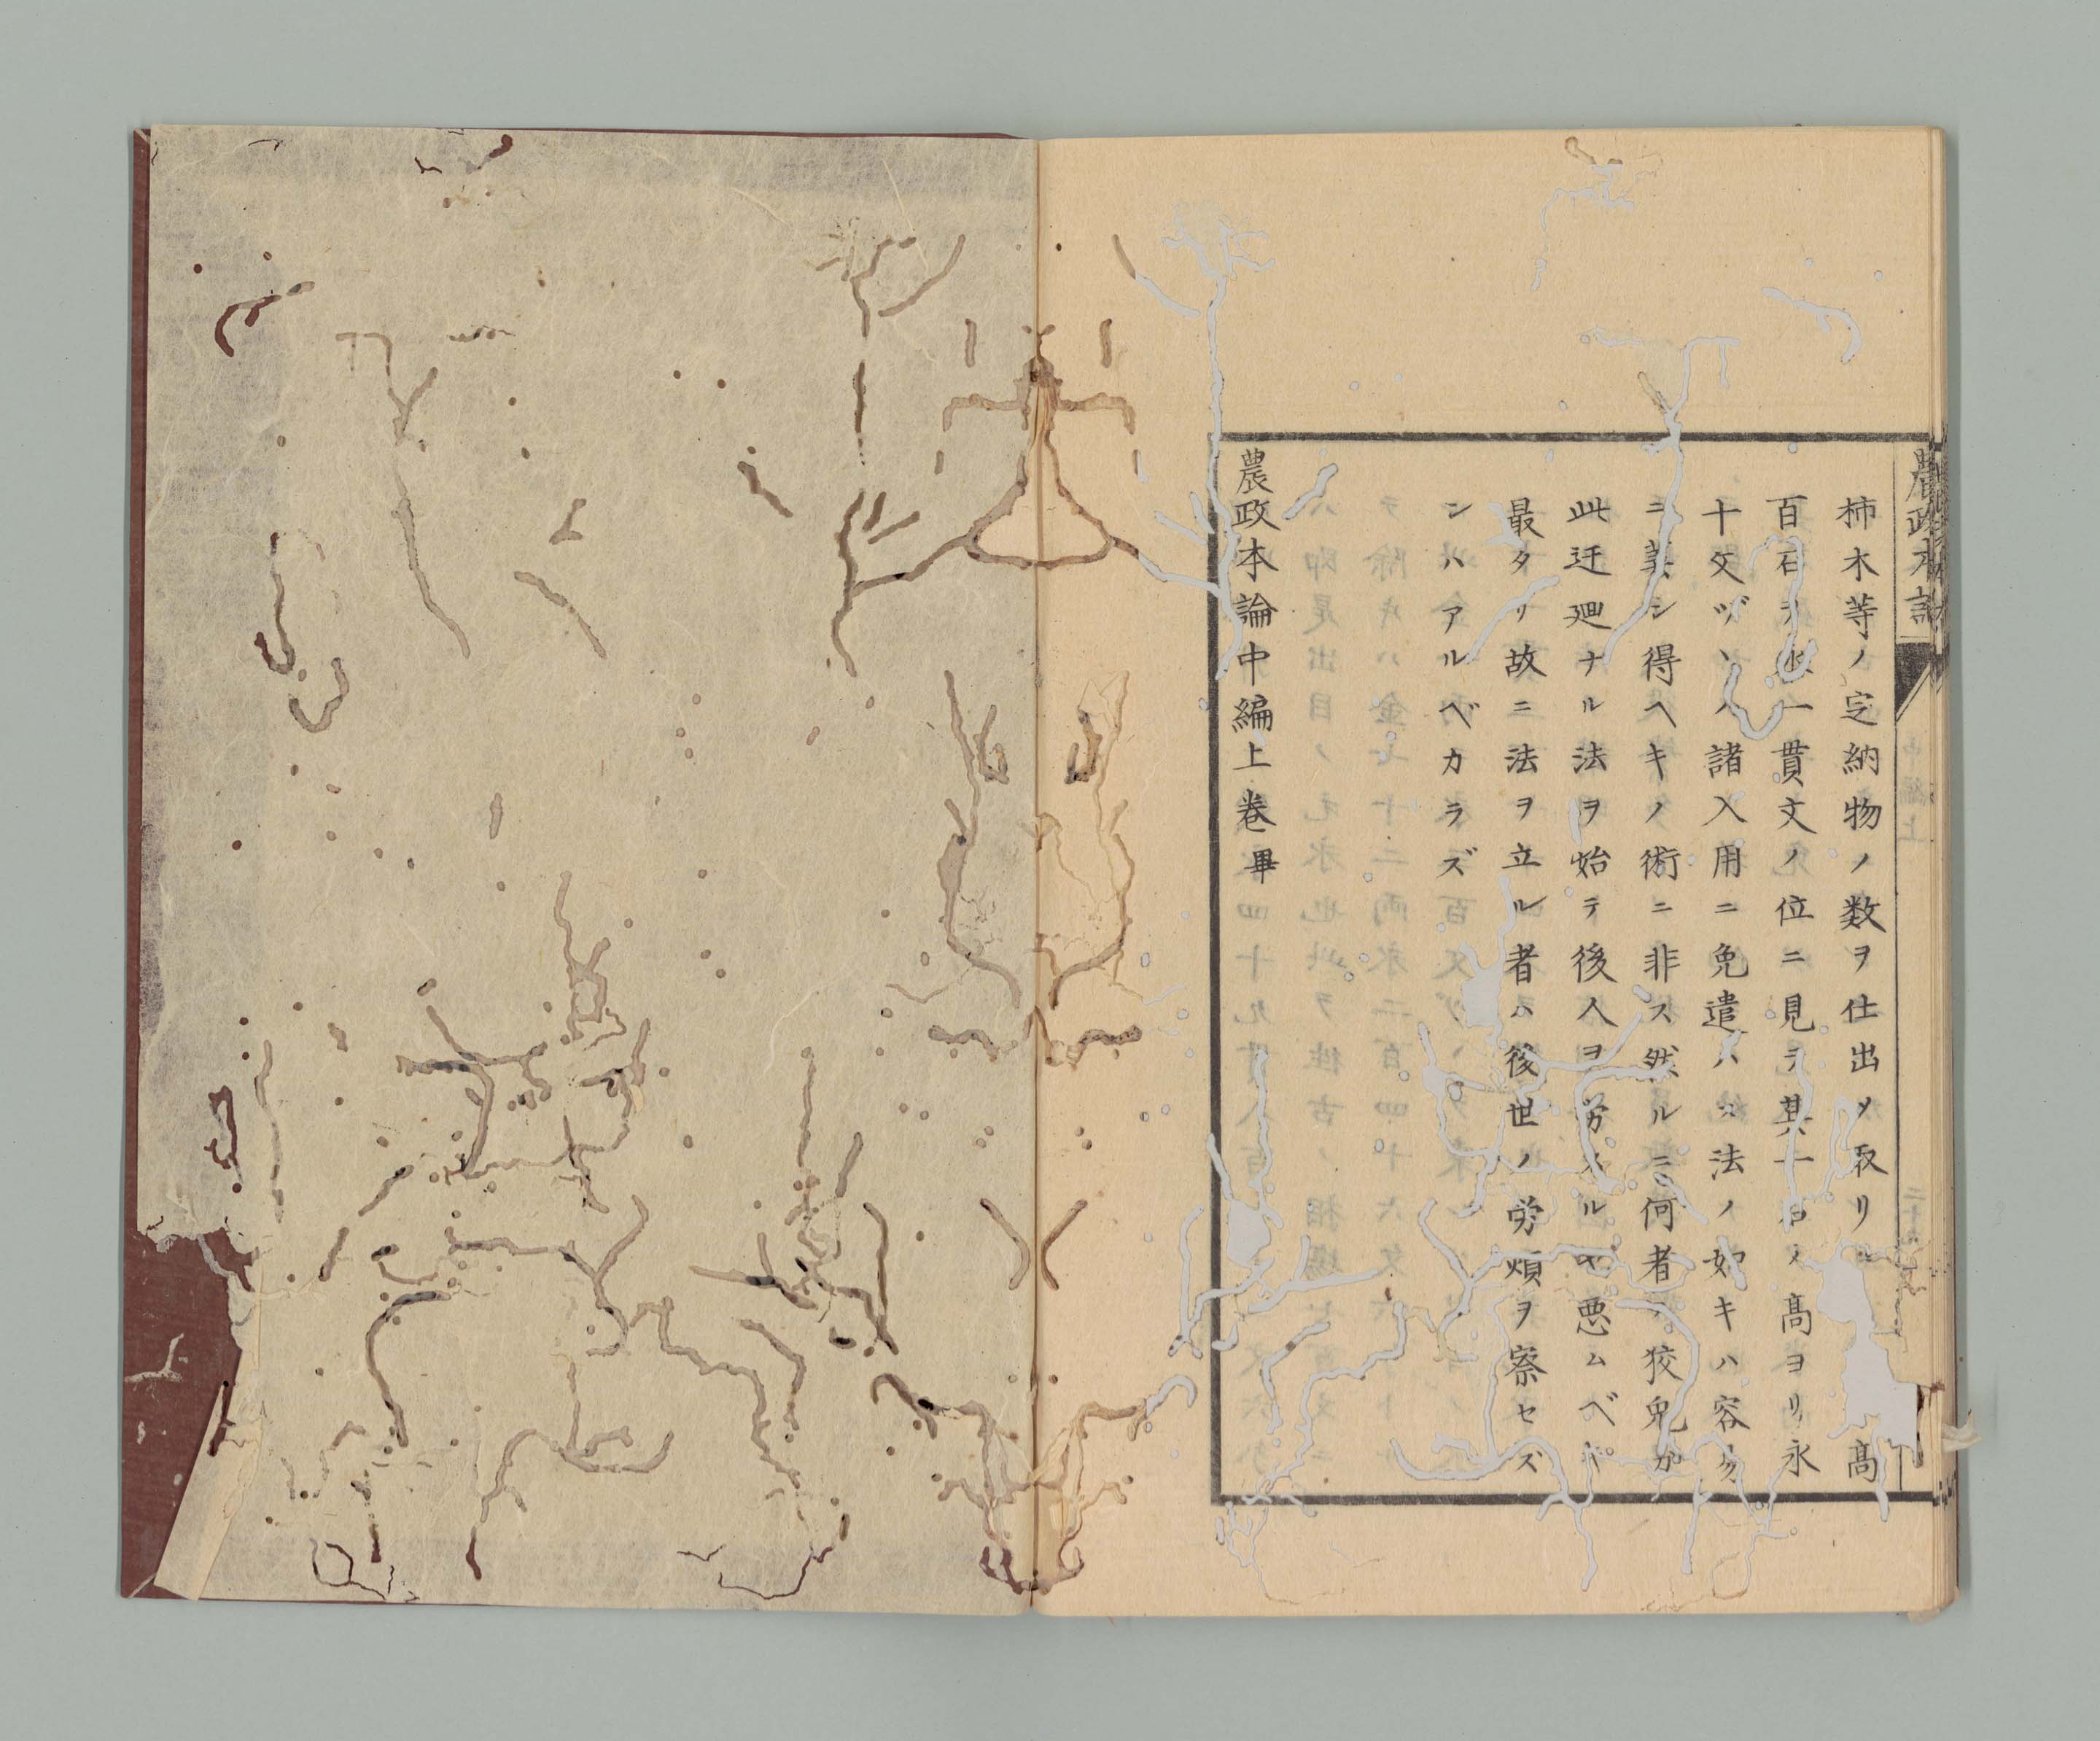 農政本論
中編上
柿木等ノ定納物ノ数ヲ仕出メ取リル高
百石ヲ永一貫文ノ位ニ見テ其一石ヌ高ヨリ永
十文ヅヽノ諸入用ニ免遣ハス法ノ如キハ容易
ニ美シ得ヘキノ術ニ非ス然ルニ何者ノ狡児カ
此迂廻ナル法ヲ始テ後人ヲ労スルヤ悪ムベキ
最タリ故ニ法ヲ立ル者ハ後世ノ労煩ヲ察セズ
ンハアルベカラズ
農政本論中編上巻畢